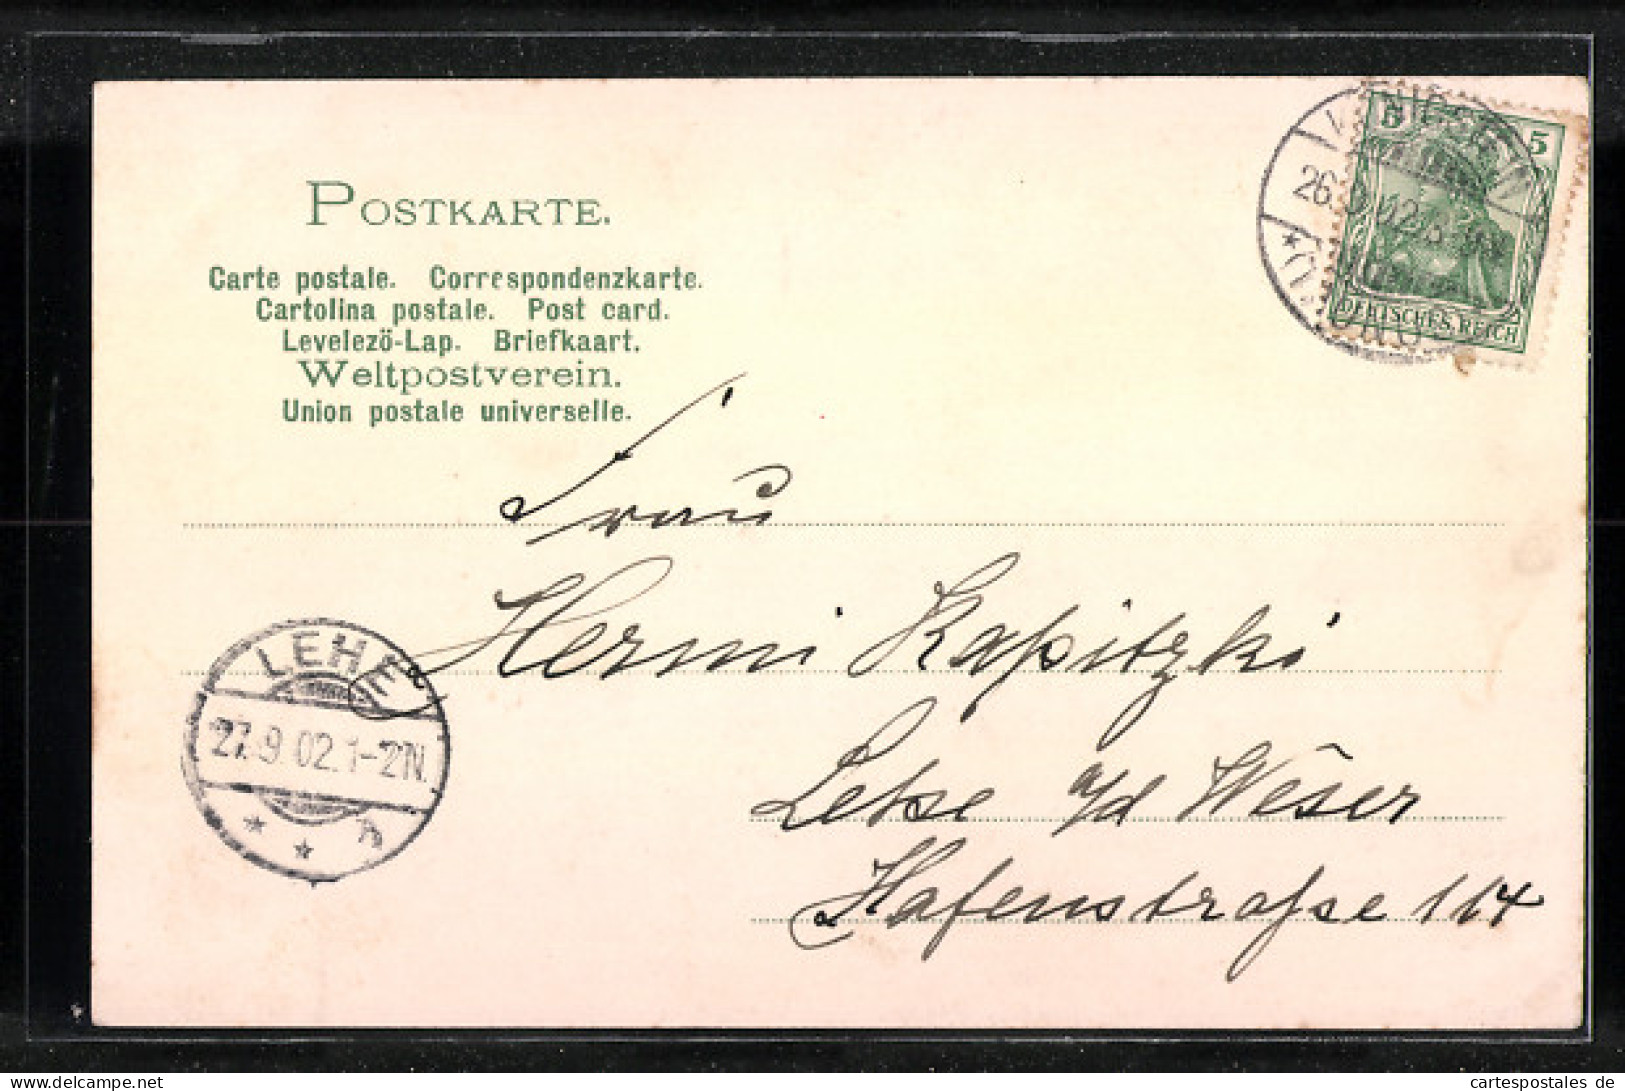 POSTKARTE.
Carte postale. Correspondenzkarte.
Cartolina postale. Post card.
Levelező-Lap. Briefkaart.
Weltpostverein.
Union postale universelle.
5 5
DEUTSCHES REICH
26.
Frau
Hermi Kapitzki
Lehe a/d Weser
Hafenstraße 114
LEHE
27.9.02.1-2N.
* * *
Delcampe.net
cartespostales de